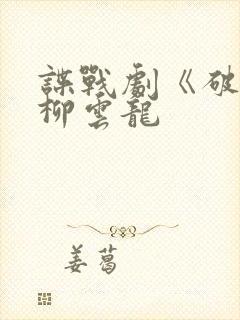 諜戰劇《破
柳雲龍
姜葛